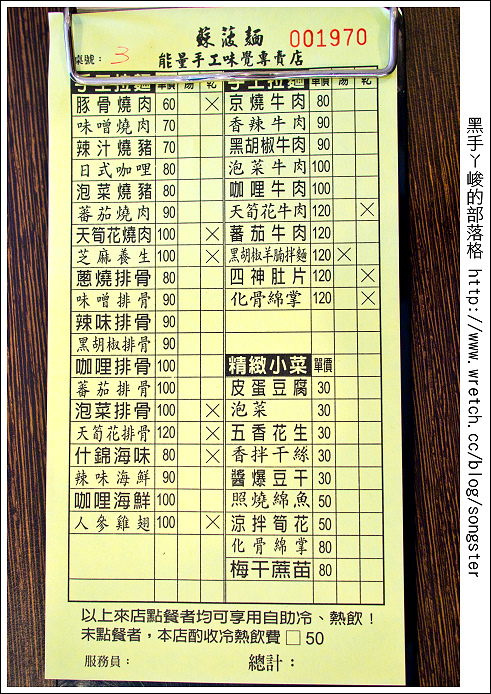 蘇波麵 001970
桌號： 3 能量手工味覺專賣店
手工拉麵 單價 湯 乾
豚骨燒肉 60 ×
味噌燒肉 70
辣汁燒豬 70
日式咖哩 80
泡菜燒豬 80
蕃茄燒肉 90
天筍花燒肉 100 ×
芝麻養生 100 ×
蔥燒排骨 80
味噌排骨 90
辣味排骨 90
黑胡椒排骨 90
咖哩排骨 100
蕃茄排骨 100
泡菜排骨 100 ×
天筍花排骨 120 ×
什錦海味 80 ×
辣味海鮮 90
咖哩海鮮 100
人參雞翅 100 ×
手工拉麵 單價 湯 乾
京燒牛肉 80
香辣牛肉 90
黑胡椒牛肉 90
泡菜牛肉 100
咖哩牛肉 100
天筍花牛肉 120 ×
蕃茄牛肉 120
黑胡椒羊腩拌麵 120 ×
四神肚片 120 ×
化骨綿掌 120 ×
精緻小菜 單價
皮蛋豆腐 30
泡菜 30
五香花生 30
香拌干絲 30
醬爆豆干 30
照燒綿魚 50
涼拌筍花 50
化骨綿掌 80
梅干蔗苗 80
以上來店點餐者均可享用自助冷、熱飲！
未點餐者，本店酌收冷熱飲費 □ 50
服務員： 總計：
黑手ㄚ峻的部落格 http://www.wretch.cc/blog/songster